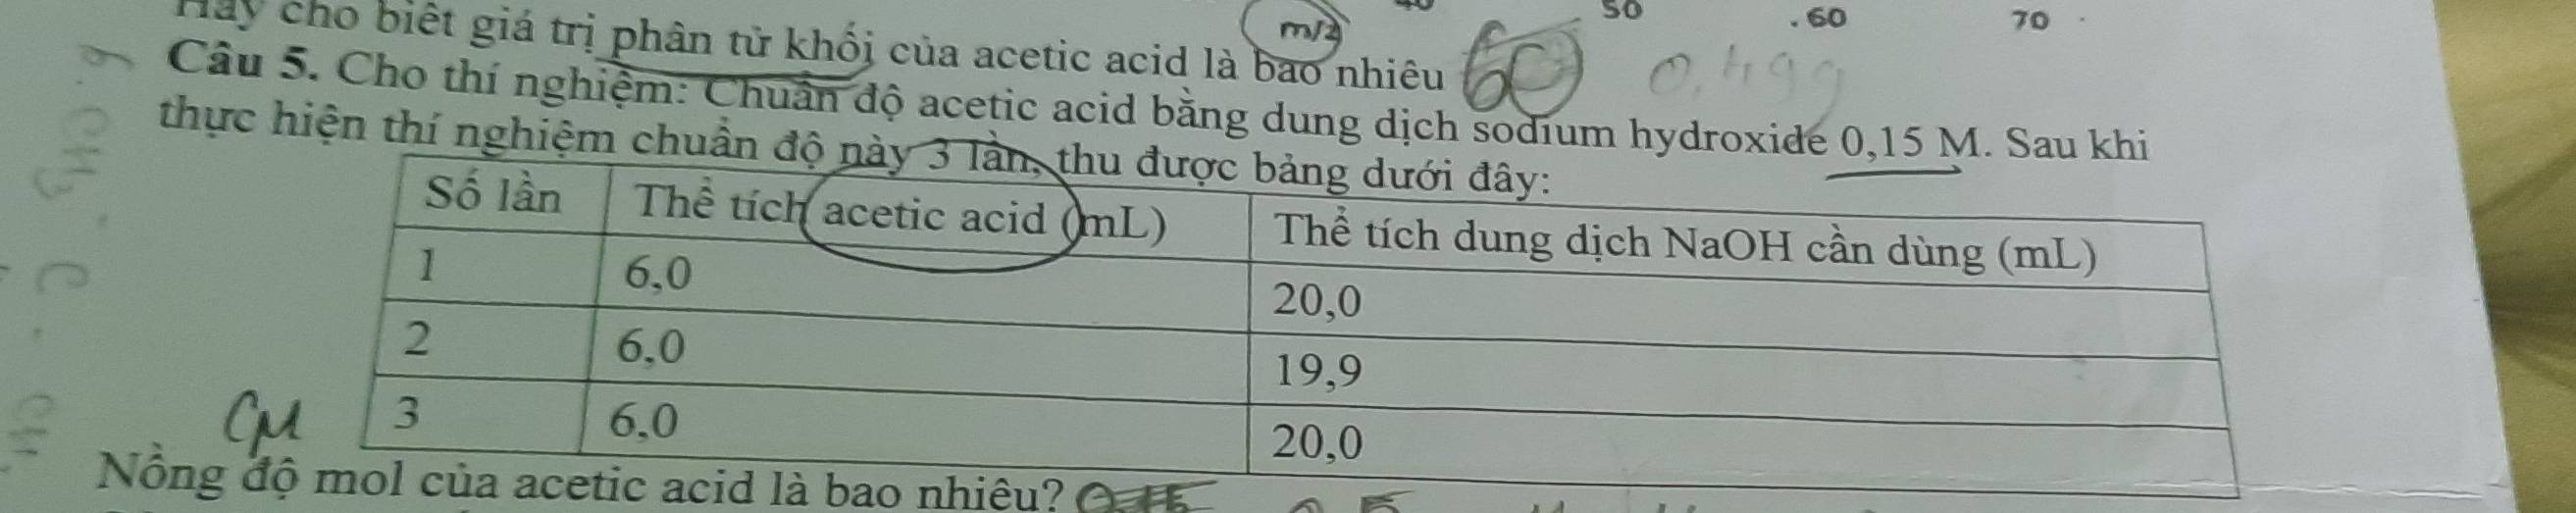 50 .60 70
Hãy cho biết giá trị phân tử khối của acetic acid là bao nhiêu 60
m/z
0,499
Câu 5. Cho thí nghiệm: Chuẩn độ acetic acid bằng dung dịch sodium hydroxide 0,15 M. Sau khi
thực hiện thí nghiệm chuẩn độ này 3 lần, thu được bảng dưới đây:
Số lần Thể tích acetic acid (mL) Thể tích dung dịch NaOH cần dùng (mL)
1 6,0 20,0
2 6,0 19,9
3 6,0 20,0
CM
Nồng độ mol của acetic acid là bao nhiêu?